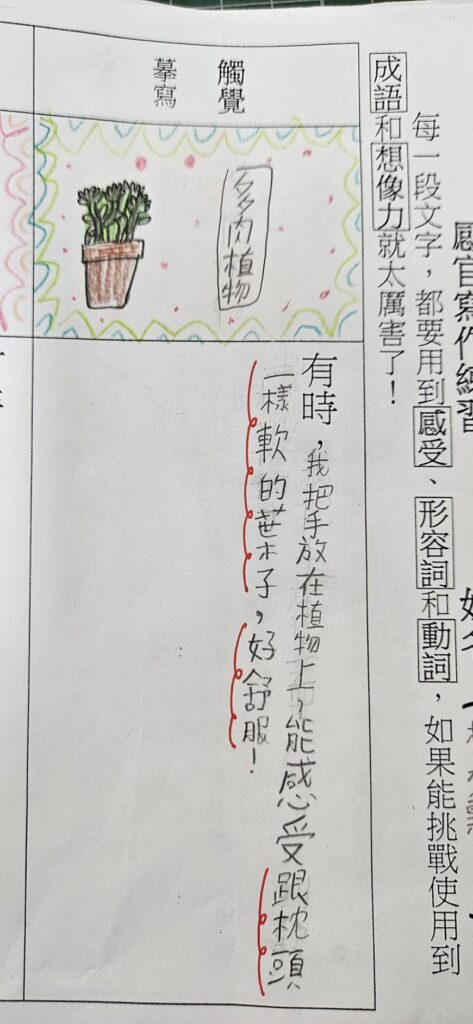 每一段文字，都要用到感受、形容詞和動詞，如果能挑戰使用到
成語和想像力就太厲害了！
觸覺
摹寫
多肉植物
有時，我把手放在植物上，能感受跟枕頭
一樣軟的葉子，好舒服！